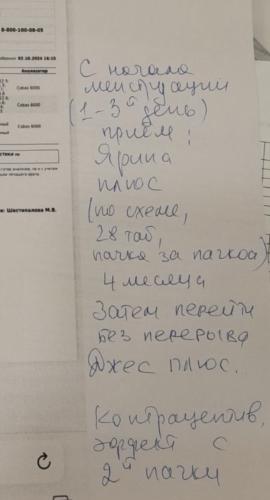 8-800-100-08-05
02.10.2024 16:15
Анализатор
Cobas 6000
Cobas 6000
Cobas 6000
Шестипалова М.В.
С начала
менструации
(1-3й день)
приём:
Ярина
плюс
(по схеме,
28 таб,
пачка за пачкой)
4 месяца
Затем перейти
без перерыва
Джес плюс.
Контрацептив.
эффект с
2й пачки